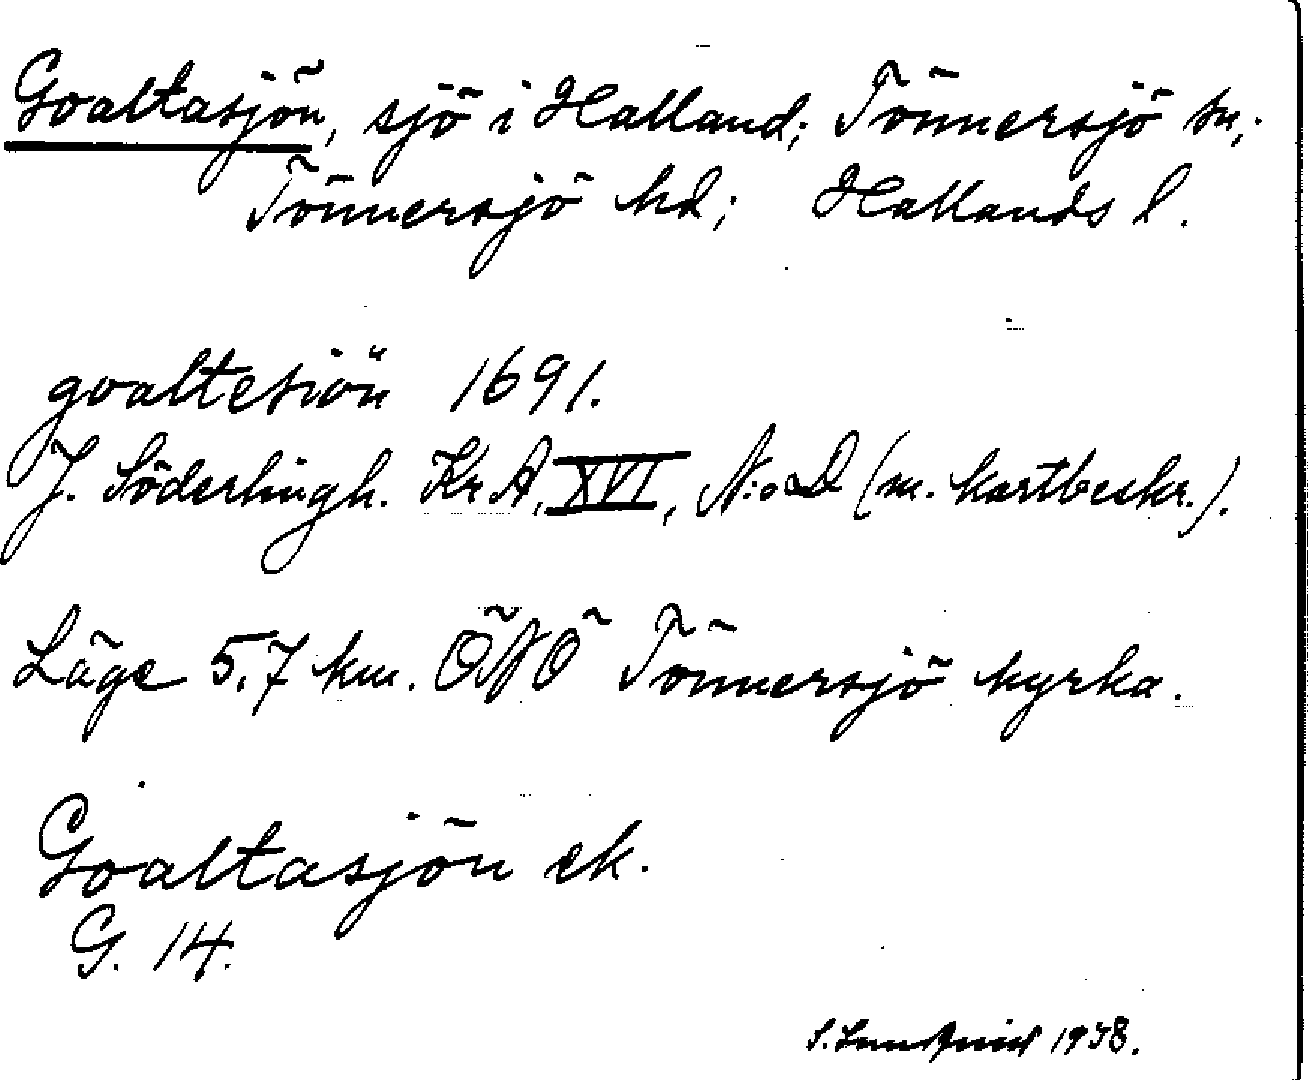 Goaltasjön, sjö i Halland; Tönnersjö sn,;
Tönnersjö hd; Hallands l.
goaltesiön 1691.
J. Söderlingh. Kr A, XVI, N:o D (m. kartbeskr.).
Läge 5,7 km. ÖNÖ Tönnersjö kyrka.
Goaltasjön ek.
G. 14.
1938.